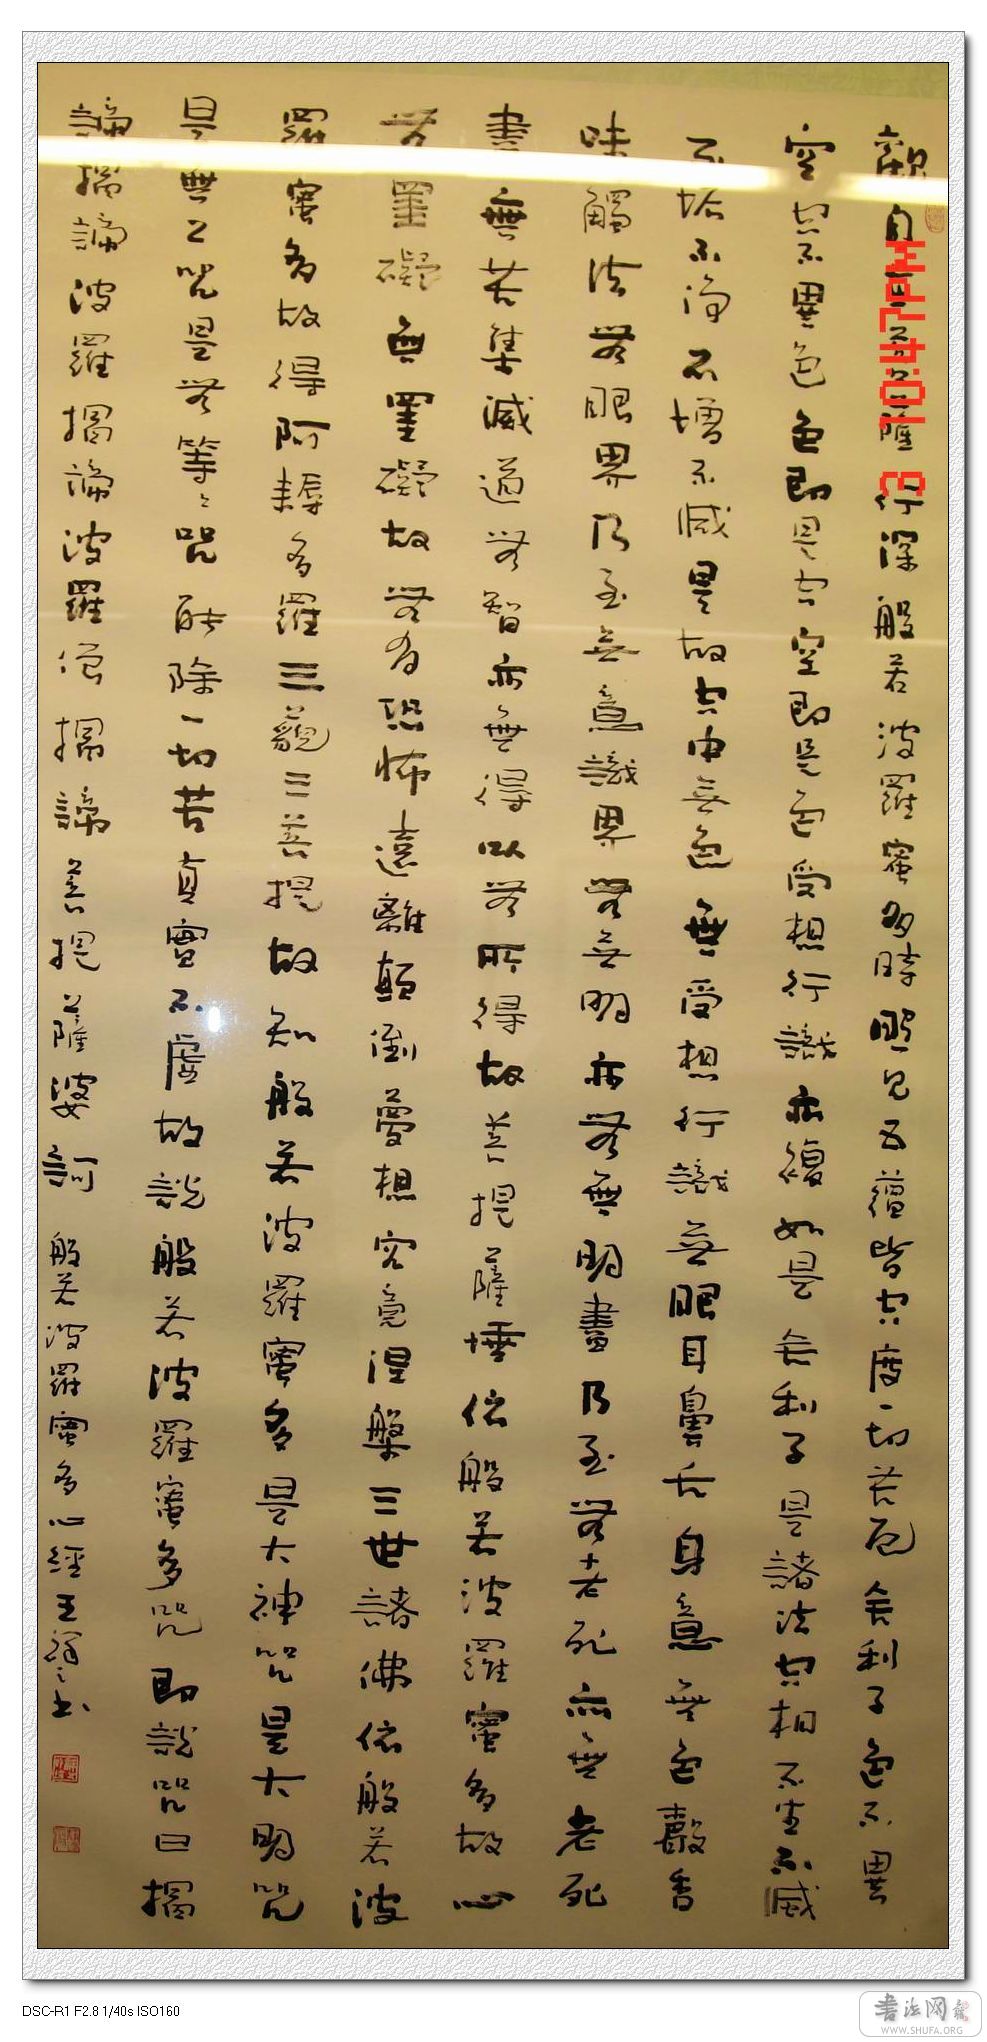 觀自在菩薩行深般若波羅蜜多時照見五蘊皆空度一切苦厄舍利子色不異
空空不異色色即是空空即是色受想行識亦復如是舍利子是諸法空相不生不滅
不垢不淨不增不減是故空中無色無受想行識無眼耳鼻舌身意無色聲香
味觸法無眼界乃至無意識界無無明亦無無明盡乃至無老死亦無老死
盡無苦集滅道無智亦無得以無所得故菩提薩埵依般若波羅蜜多故心
無罣礙無罣礙故無有恐怖遠離顛倒夢想究竟涅槃三世諸佛依般若波
羅蜜多故得阿耨多羅三藐三菩提故知般若波羅蜜多是大神咒是大明咒
是無上咒是無等等咒能除一切苦真實不虛故說般若波羅蜜多咒即說咒曰揭
諦揭諦波羅揭諦波羅僧揭諦菩提薩婆訶 般若波羅蜜多心經王書
3 10:47PM
DSC-R1 F2.8 1/40s ISO160
書法网
WWW.SHUFA.ORG